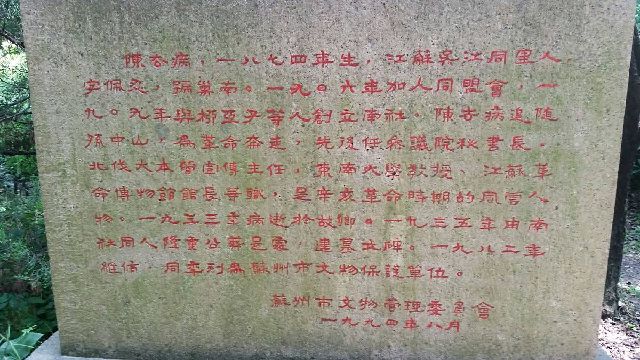 陳去病，一八七四年生，江蘇吳江同里人
字佩忍，號巢南。一九〇六年加入同盟會，一
九〇九年與柳亞子等人創立南社。陳去病追隨
孫中山，為革命奔走，先後任參議院秘書長、
北伐大本營宣傳主任，東南大學教授、江蘇革
命博物館館長等職，是辛亥革命時期的風雲人
物。一九三三年病逝於故鄉。一九三五年由南
社同人隆重公葬是處，建墓立碑。一九八二年
維修，同年列為蘇州市文物保護單位。
蘇州市文物管理委員會
一九九四年八月